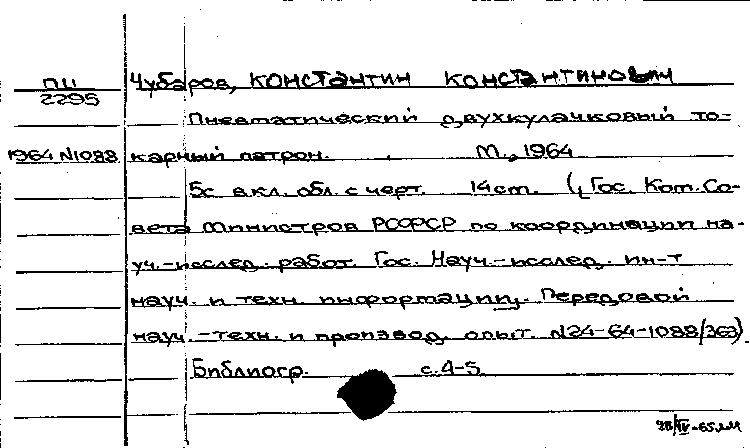 ПИ Чубаров, КОНСТАНТИН КОНСТАНТИНОВИЧ
2295
Пневматический двухкулачковый то-
1964 N1088 карный патрон. М., 1964
5с вкл. обл. с черт. 14 см. (Гос. Ком. Со-
вета Министров РСФСР по координации на-
уч.-исслед. работ. Гос. Науч.-исслед. ин-т
науч. и техн. информации. Передовой
науч.-техн. и производ. опыт. N24-64-1088/363)
Библиогр. с.4-5
28/IV-65